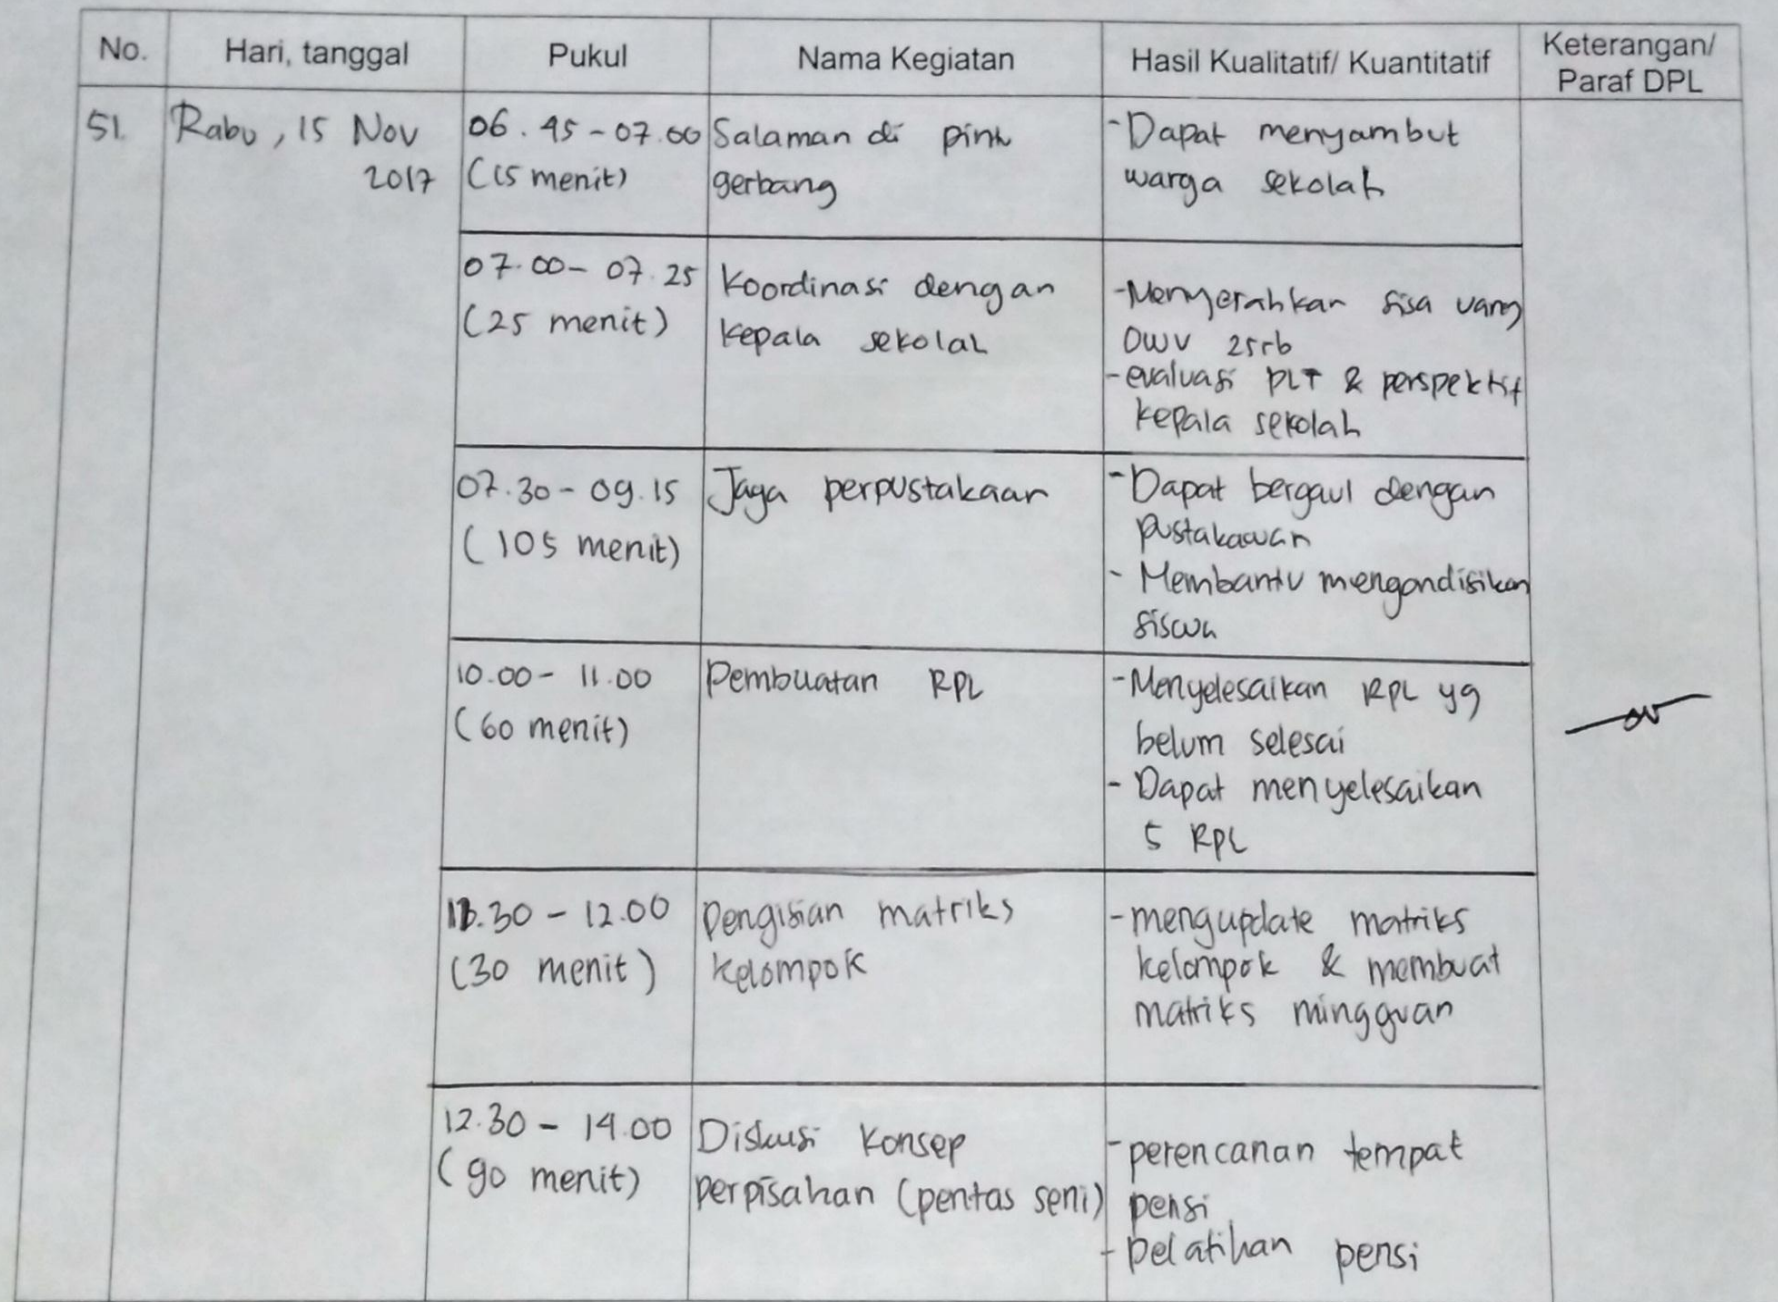 No.
Hari, tanggal
Pukul
Nama Kegiatan
Hasil Kualitatif/ Kuantitatif
Keterangan/
Paraf DPL
51.
Rabu, 15 Nov
2017
06.45 - 07.00
(15 menit)
Salaman di pint
gerbang
- Dapat menyambut
warga sekolah
07.00 - 07.25
(25 menit)
Koordinasi dengan
kepala sekolah
- Menyerahkan sisa uang
25rb
- evaluasi PLT & perspektif
kepala sekolah
07.30 - 09.15
(105 menit)
Jaga perpustakaan
- Dapat bergaul dengan
pustakawan
- Membantu mengondisikan
siswa
10.00 - 11.00
(60 menit)
Pembuatan RPL
- Menyelesaikan RPL yg
belum selesai
- Dapat menyelesaikan
5 RPL
11.30 - 12.00
(30 menit)
Pengisian matriks
kelompok
- mengupdate matriks
kelompok & membuat
matriks mingguan
12.30 - 14.00
(90 menit)
Diskusi Konsep
perpisahan (pentas seni)
- perencanan tempat
pensi
- pelatihan pensi